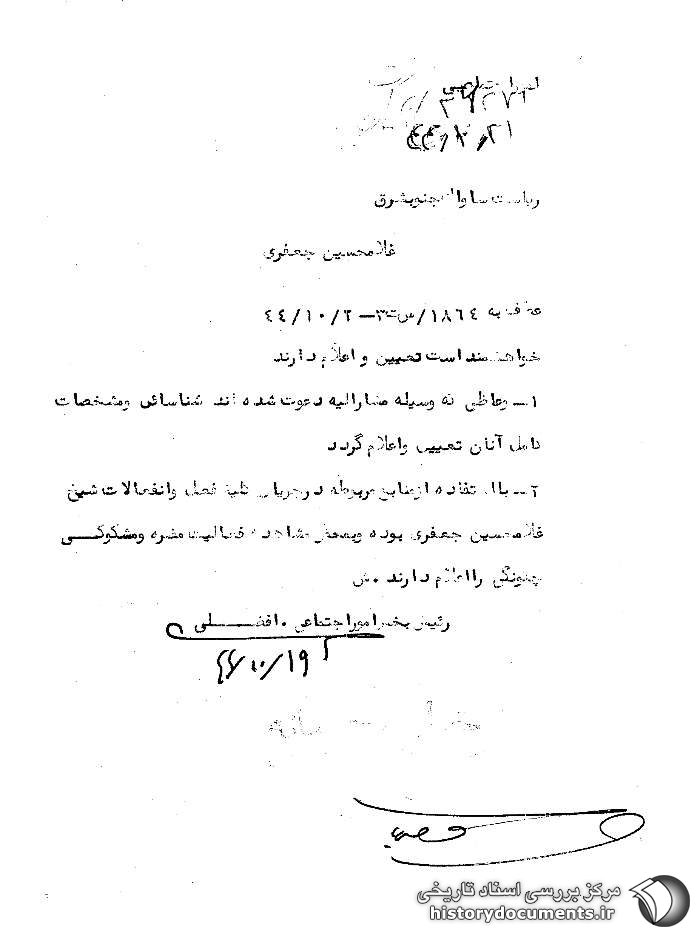 ۳۹۲۷۲
۴۴/۱۰/۲۱
ریاست ساواک جنوبشرق
غلامحسین جعفری
عطف به ۱۸۶٤/س‌ت۳ــ ٤٤/۱۰/۲
خواهشمند است تعیین و اعلام دارند
۱ــ وعاظی که وسیله مشارالیه دعوت شده اند شناسائی ومشخصات
کامل آنان تعیین واعلام گردد
۲ــ بااستفاده ازمنابع مربوطه درجریان کلیه فعل وانفعالات شیخ
غلامحسین جعفری بوده وبمحض مشاهده فعالیت مضره ومشکوکی
چگونگی رااعلام دارند .ش
رئیس بخش اموراجتماعی . افضلی
۴۴/۱۰/۱۹
مرکز بررسی اسناد تاریخی
historydocuments.ir